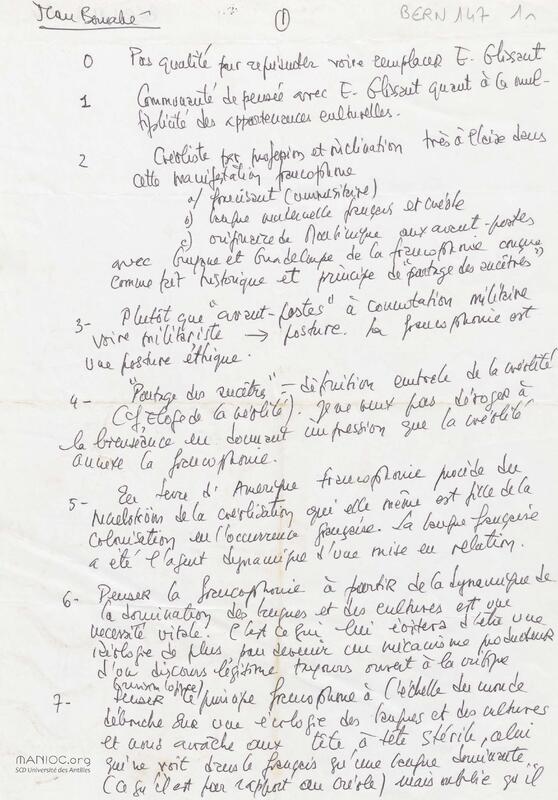 Jean Bernabé
1
BERN 147 1n
0 Pas qualité pour représenter voire remplacer E. Glissant
1 Communauté de pensée avec E. Glissant quant à la mul-
tiplicité des appartenances culturelles.
2 Créoliste par profession et inclination très à l'aise dans
cette manifestation francophone
a/ francisant (universitaire)
b) langue maternelle français et créole
c) originaire de Martinique aux avant-postes
avec Guyane et Guadeloupe de la francophonie conçue
comme fait historique et principe de "partage des ancêtres"
3- Plutôt que "avant-postes" à connotation militaire
voire militariste → posture. la francophonie est
une posture éthique.
4- "Partage des ancêtres" - définition centrale de la créolité
(Cf. Eloge de la créolité). Je ne veux pas déroger à
la bienséance en donnant impression que la créolité
annexe la francophonie.
5- En terre d'Amérique francophonie procède du
de la créolisation qui elle même est fille de la
colonisation en l'occurrence française. la langue française
a été l'agent dynamique d'une mise en relation.
6- Penser la francophonie à partir de la dynamique de
la domination des langues et des cultures est une
nécessité vitale. C'est ce qui lui évitera d'être une
idéologie de plus pour devenir un mécanisme producteur
d'un discours légitime toujours ouvert à la critique
7- Penser le principe francophone à l'échelle du monde
débouche sur une écologie des langues et des cultures
et nous arrache aux tête à tête stérile, celui
qui ne voit dans le français qu'une langue dominante
(ce qu'il est par rapport au créole) mais oublie qu'il
MANIOC.org
SCD Université des Antilles